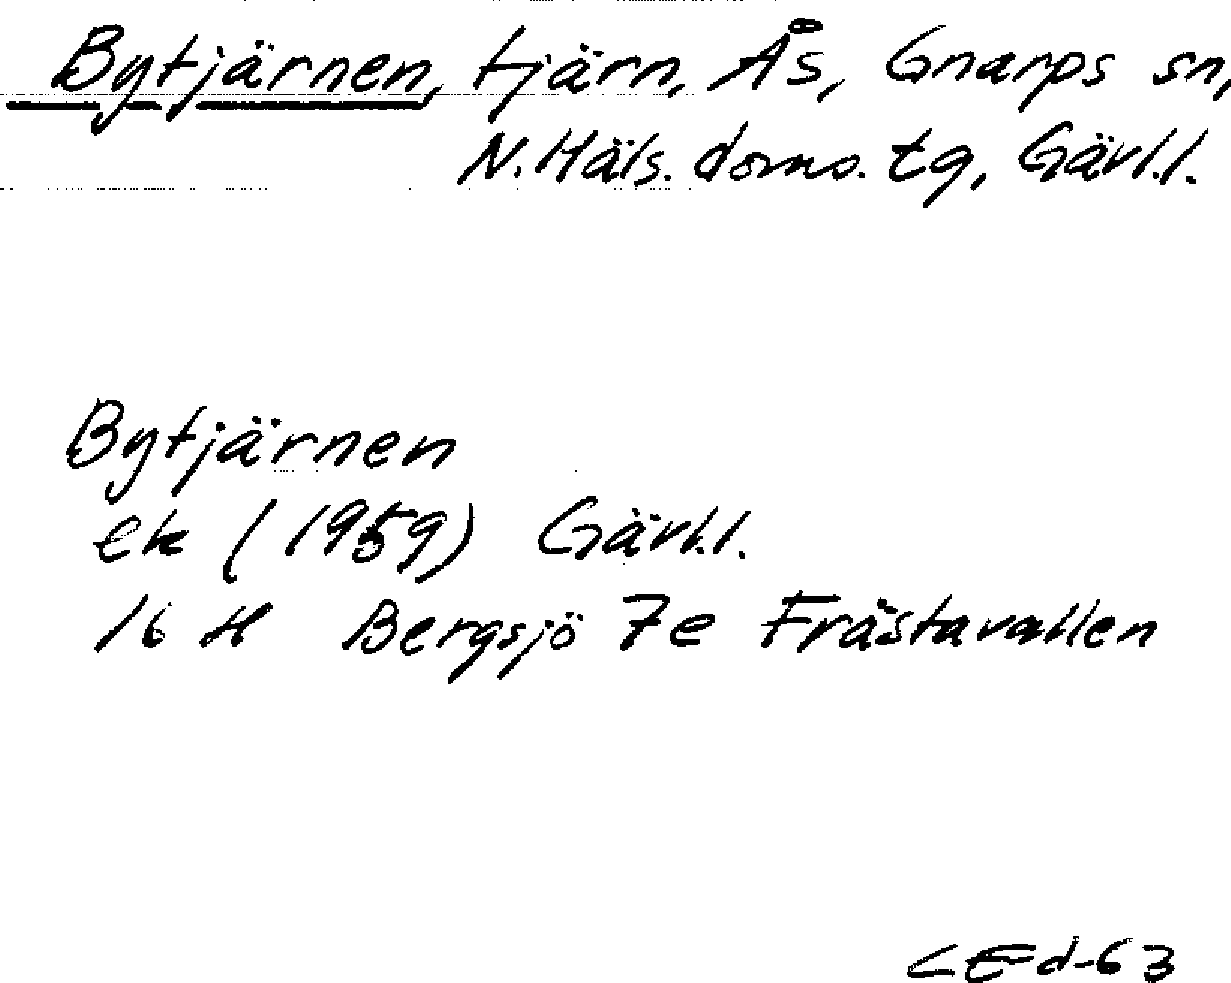 Bytjärnen, tjärn, Ås, Gnarps sn,
N. Häls. doms. tg, Gävl.l.
Bytjärnen
ek (1959) Gävl.l.
16 H Bergsjö 7e Frästavallen
CEd-63